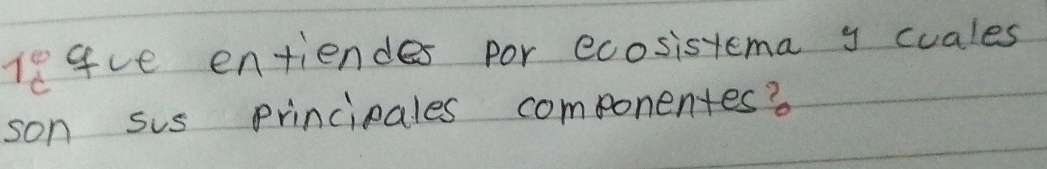 1º ¿que entiendes por ecosistema y cuales
son sus principales componentes?